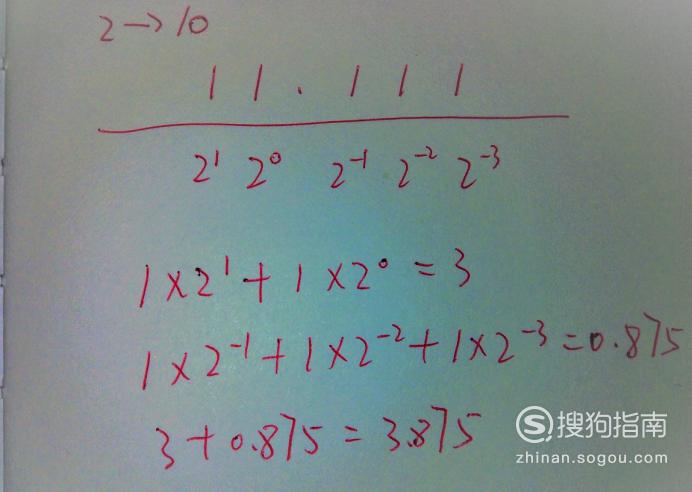 2→10
1 1 . 1 1 1
2¹ 2⁰ 2⁻¹ 2⁻² 2⁻³
1×2¹+1×2⁰=3
1×2⁻¹+1×2⁻²+1×2⁻³=0.875
3+0.875=3.875
S 搜狗指南
zhinan.sogou.com